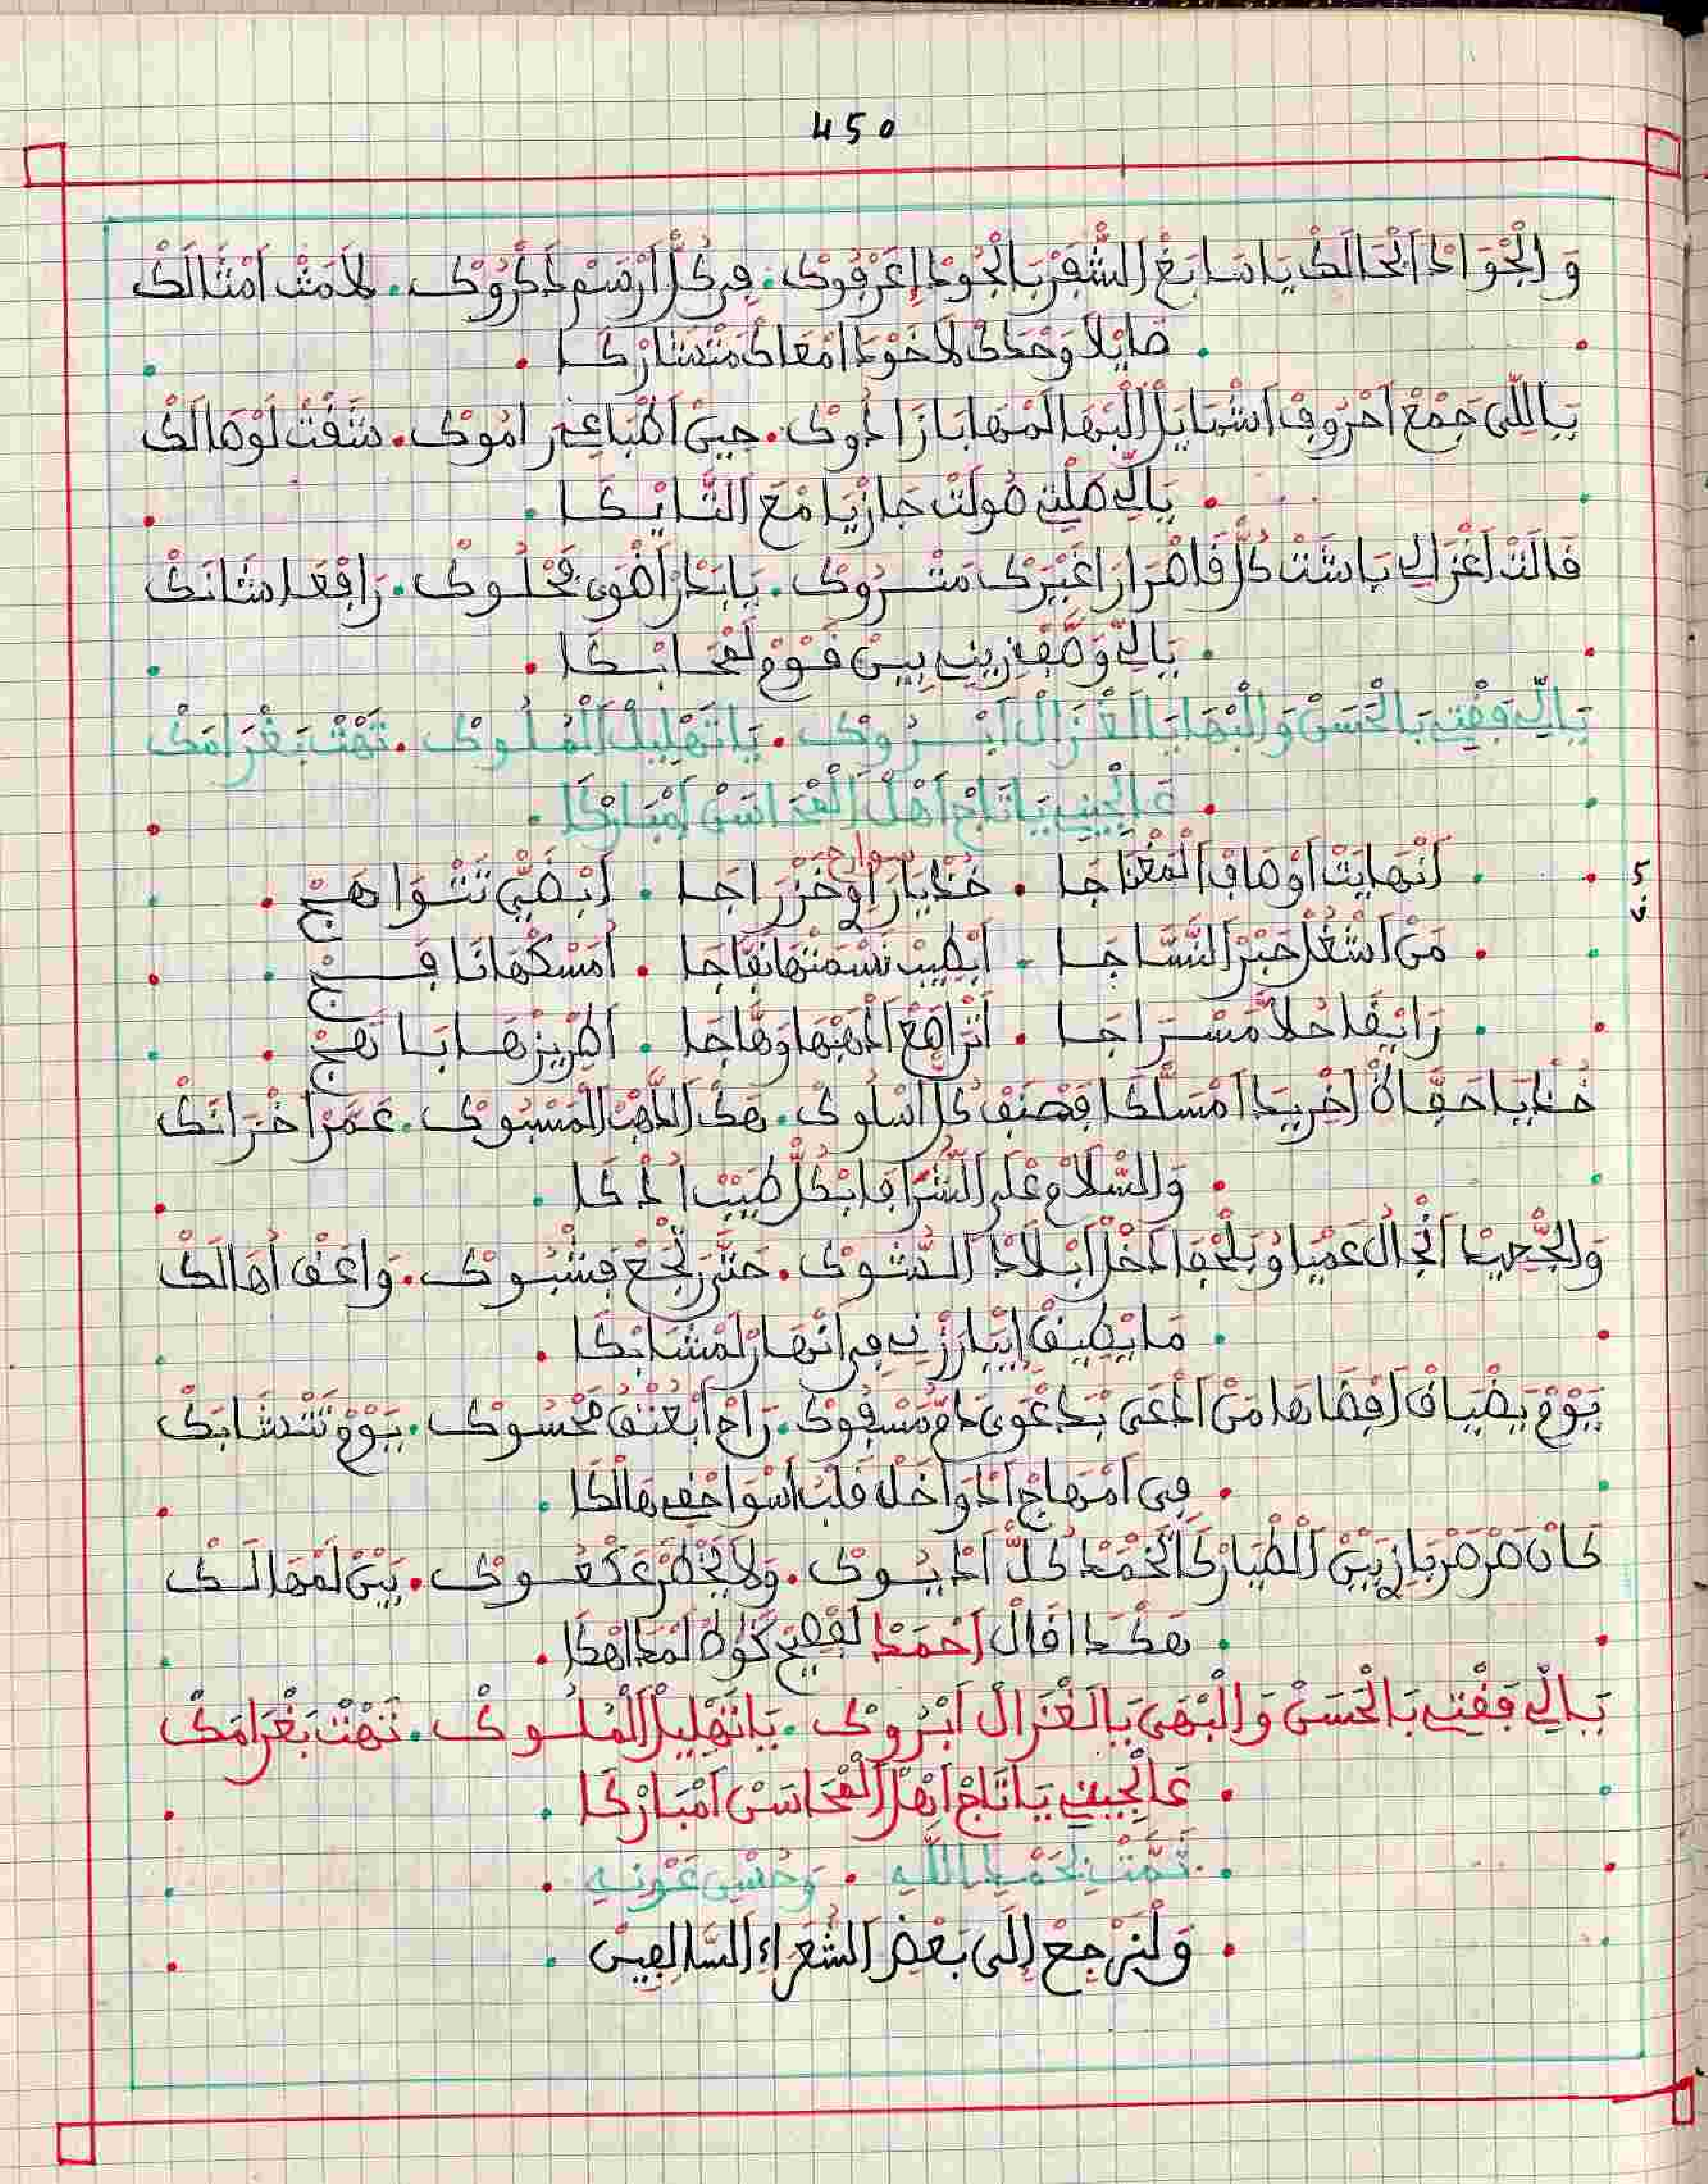 450
وَالْجْوَادْ أَنْحَالَكْ يَا سَابَغْ الشّْفَرْ بَالْجُودْ إِعَرْفُوكْ . فِي كُلّْ أَرْسَمْ ذَكْرُوكْ . لَا مَثْ امْثَالَكْ
. صَايْلَا وَحْدَكْ لَا خَوْدَا امْعَاكْ مَتْشَارْكَا .
يَاللِّي جَمْعْ احْرُوفْ اشْمَايَلْ الْبْهَا لَمْهَا بَازَادُوكْ . حِينْ اطْبَاعِي رَامُوكْ . شَفْتْ لَوْصَالَكْ
. يَالِّي صَلْتِي صُولَتْ جَازْيَا مْعَ التَّايْكَا .
قَالَتْ اغْزَالِي بَاشَتْ كُلّْ قَاصْرَا غَيْرَكْ مَتْرُوكْ . يَا بَدْرْ اضْوَى مَحْلُوكْ . رَافْعَا شَانَكْ
. يَالِّي وَصْفِي زِينِي بِينْ قَوْمْ لَمْحَانْكَا .
يَالِّي فِقْتِي بَالْحَسْنْ وَالْبْهَا يَا الْغْزَالْ ابْرُوكْ . يَا تَهْلِيلْ الْمُلُوكْ . تَهْتْ بَغْرَامَكْ
. عَالْجِينِي يَا تَاجْ اهْلْ الْمْحَاسَنْ امْبَارْكَا .
سوارح
. أَنْهَايَتْ اوْصَافْ الْمَغْنَاجَا . خُذْ يَا رَاوِي خَزْرَاجَا . أَبْضَيّْ تَتْوَاهَجْ .
. مَنْ اشْغُلْ حَبْرْ النَّسَّاجَا . أَبْطِيبْ نَسْمَتْهَا نَفَّاجَا . أَمَسْكْهَا نَافَجْ .
. رَايْقَا حُلَّا مَسْرَاجَا . أَتْرَاصَعْ اذْهَبْهَا وَهَّاجَا . اطْرِيزْهَا بَاهَجْ .
خُذْ يَا حَفَّاظْ اخْرِيدَا امْسَلّْكَا فَصْنَفْ كُلّْ اسْلُوكْ . هَكْ الذَّهْبْ الْمَسْبُوكْ . عَمَّرْ اخْزَانَكْ
. وَالسّْلَامْ عْلَى الشُّرَافَا بْكُلّْ طِيبْ اذْكَا .
وَالجّْحِيدْ انْجَالْ عَمْيَا وُيَلْحْقَا دْخَلْ ابْلَادْ الشُّوكْ . حَتَّى رَجْعْ فَشْبُوكْ . وَاعَفْ اهَالَكْ
. مَا يْطِيقْ ايْبَارَزْنِي فِي انْهَارْ لَمْشَابْكَا .
يَوْمْ يَضْيَاقْ افْضَاهَا مَنْ ادْعَى بَدْعْوَى دَمُّ مَسْفُوكْ . رَاحْ ابْعُنْقُ مَحْسُوكْ . يَوْمْ تَتْشَابَكْ
. فِي امْهَاجْ ادْوَاخَلْ قَلْبُ اسْوَاحْفِي هَالْكَا .
كَانْ صَرْصَرْ بَازْ بِينْ الطّْيَارْ كَا تَخْمَدْ كُلّْ ادْيُوكْ . وَلَا يَخْطَرْ عَكْعُوكْ . بِينْ لَمْهَالَكْ
. هَكْدَا قَالْ أَحْمَدْ لَفْصِيحْ كَوْطْ لَمْدَاهْكَا .
يَالِّي فِقْتِي بَالْحَسْنْ وَالْبْهَى يَا الْغْزَالْ ابْرُوكْ . يَا تَهْلِيلْ الْمُلُوكْ . تَهْتْ بَغْرَامَكْ
. عَالْجِينِي يَا تَاجْ اهْلْ الْمْحَاسَنْ امْبَارْكَا .
. تَمَّتْ بِحَمْدِ اللَّهِ . وَحُسْنِ عَوْنِهِ .
. وَلْنَرْجِعْ إِلَى بَعْضِ الشُّعَرَاءِ السَّالِفِينْ .